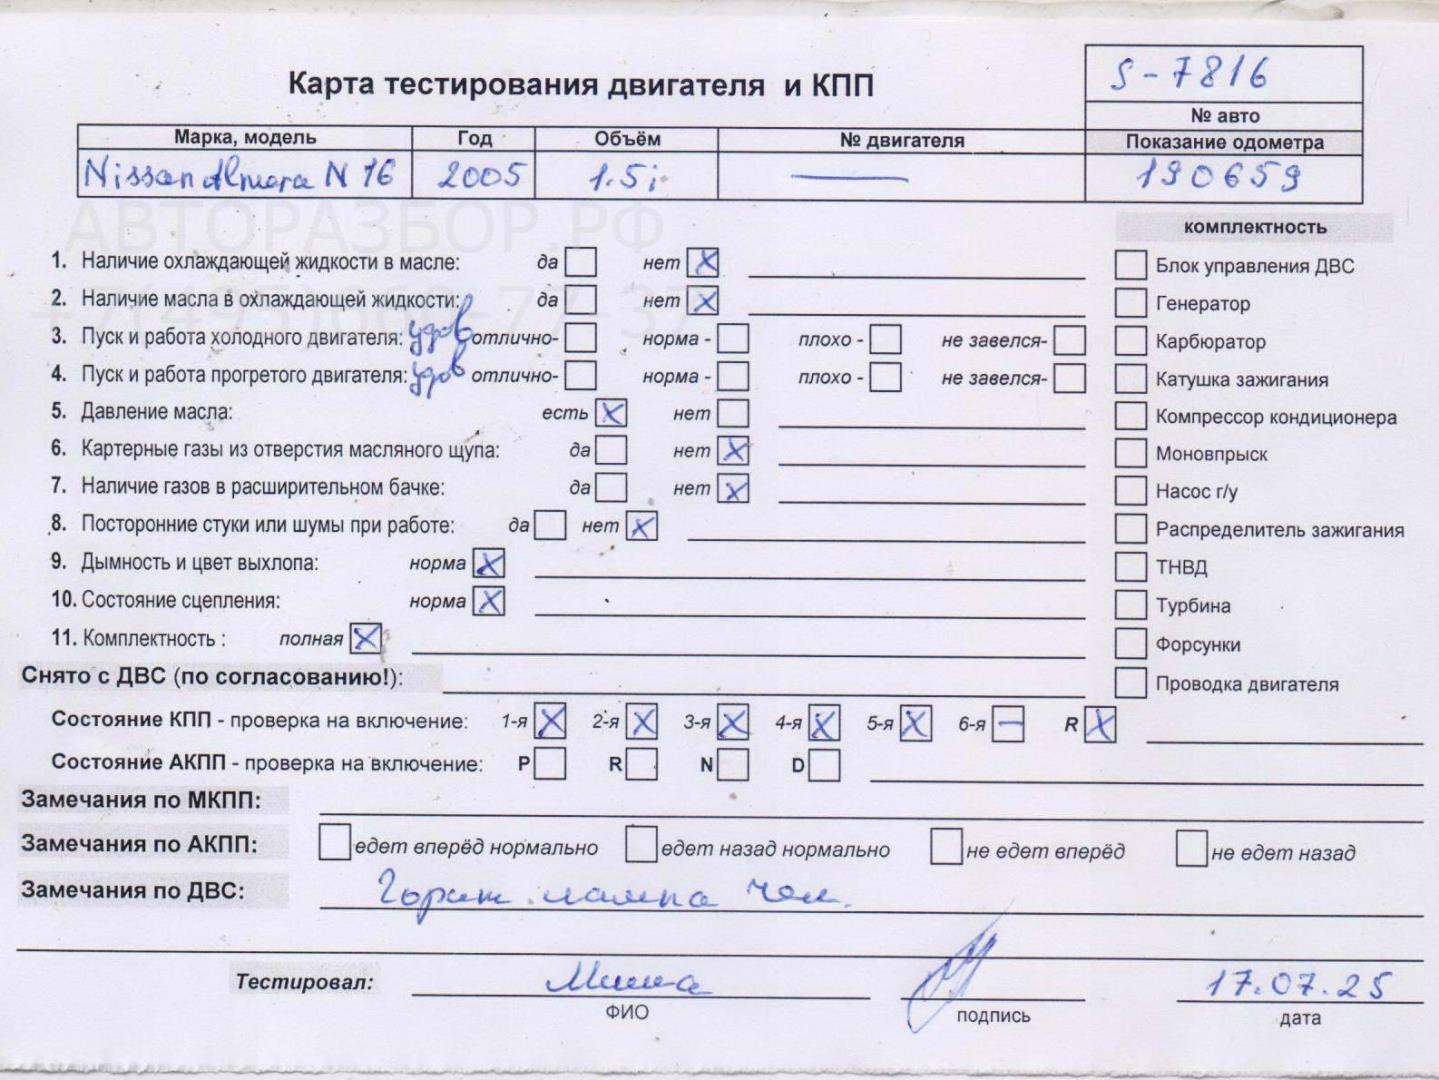 S-7816
Карта тестирования двигателя и КПП
№ авто
Марка, модель Год Объём № двигателя Показание одометра
Nissan Almera N 16 2005 1.5i — 190659
АВТОРАЗБОР.РФ
комплектность
1. Наличие охлаждающей жидкости в масле: да нет X Блок управления ДВС
2. Наличие масла в охлаждающей жидкости: да нет X Генератор
3. Пуск и работа холодного двигателя: удов отлично- норма - плохо - не завелся- Карбюратор
4. Пуск и работа прогретого двигателя: удов отлично- норма - плохо - не завелся- Катушка зажигания
5. Давление масла: есть X нет Компрессор кондиционера
6. Картерные газы из отверстия масляного щупа: да нет X Моновпрыск
7. Наличие газов в расширительном бачке: да нет X Насос г/у
8. Посторонние стуки или шумы при работе: да нет X Распределитель зажигания
9. Дымность и цвет выхлопа: норма X ТНВД
10. Состояние сцепления: норма X Турбина
11. Комплектность : полная X Форсунки
Снято с ДВС (по согласованию!): Проводка двигателя
Состояние КПП - проверка на включение: 1-я X 2-я X 3-я X 4-я X 5-я X 6-я — R X
Состояние АКПП - проверка на включение: P R N D
Замечания по МКПП:
Замечания по АКПП: едет вперёд нормально едет назад нормально не едет вперёд не едет назад
Замечания по ДВС: Горит лампа чек.
Тестировал: Миша 17.07.25
ФИО подпись дата